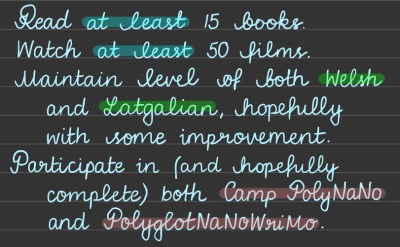 Read at least 15 books.
Watch at least 50 films.
Maintain level of both Welsh
and Latgalian, hopefully
with some improvement.
Participate in (and hopefully
complete) both Camp PolyNaNo
and PolyglotNaNoWriMo.